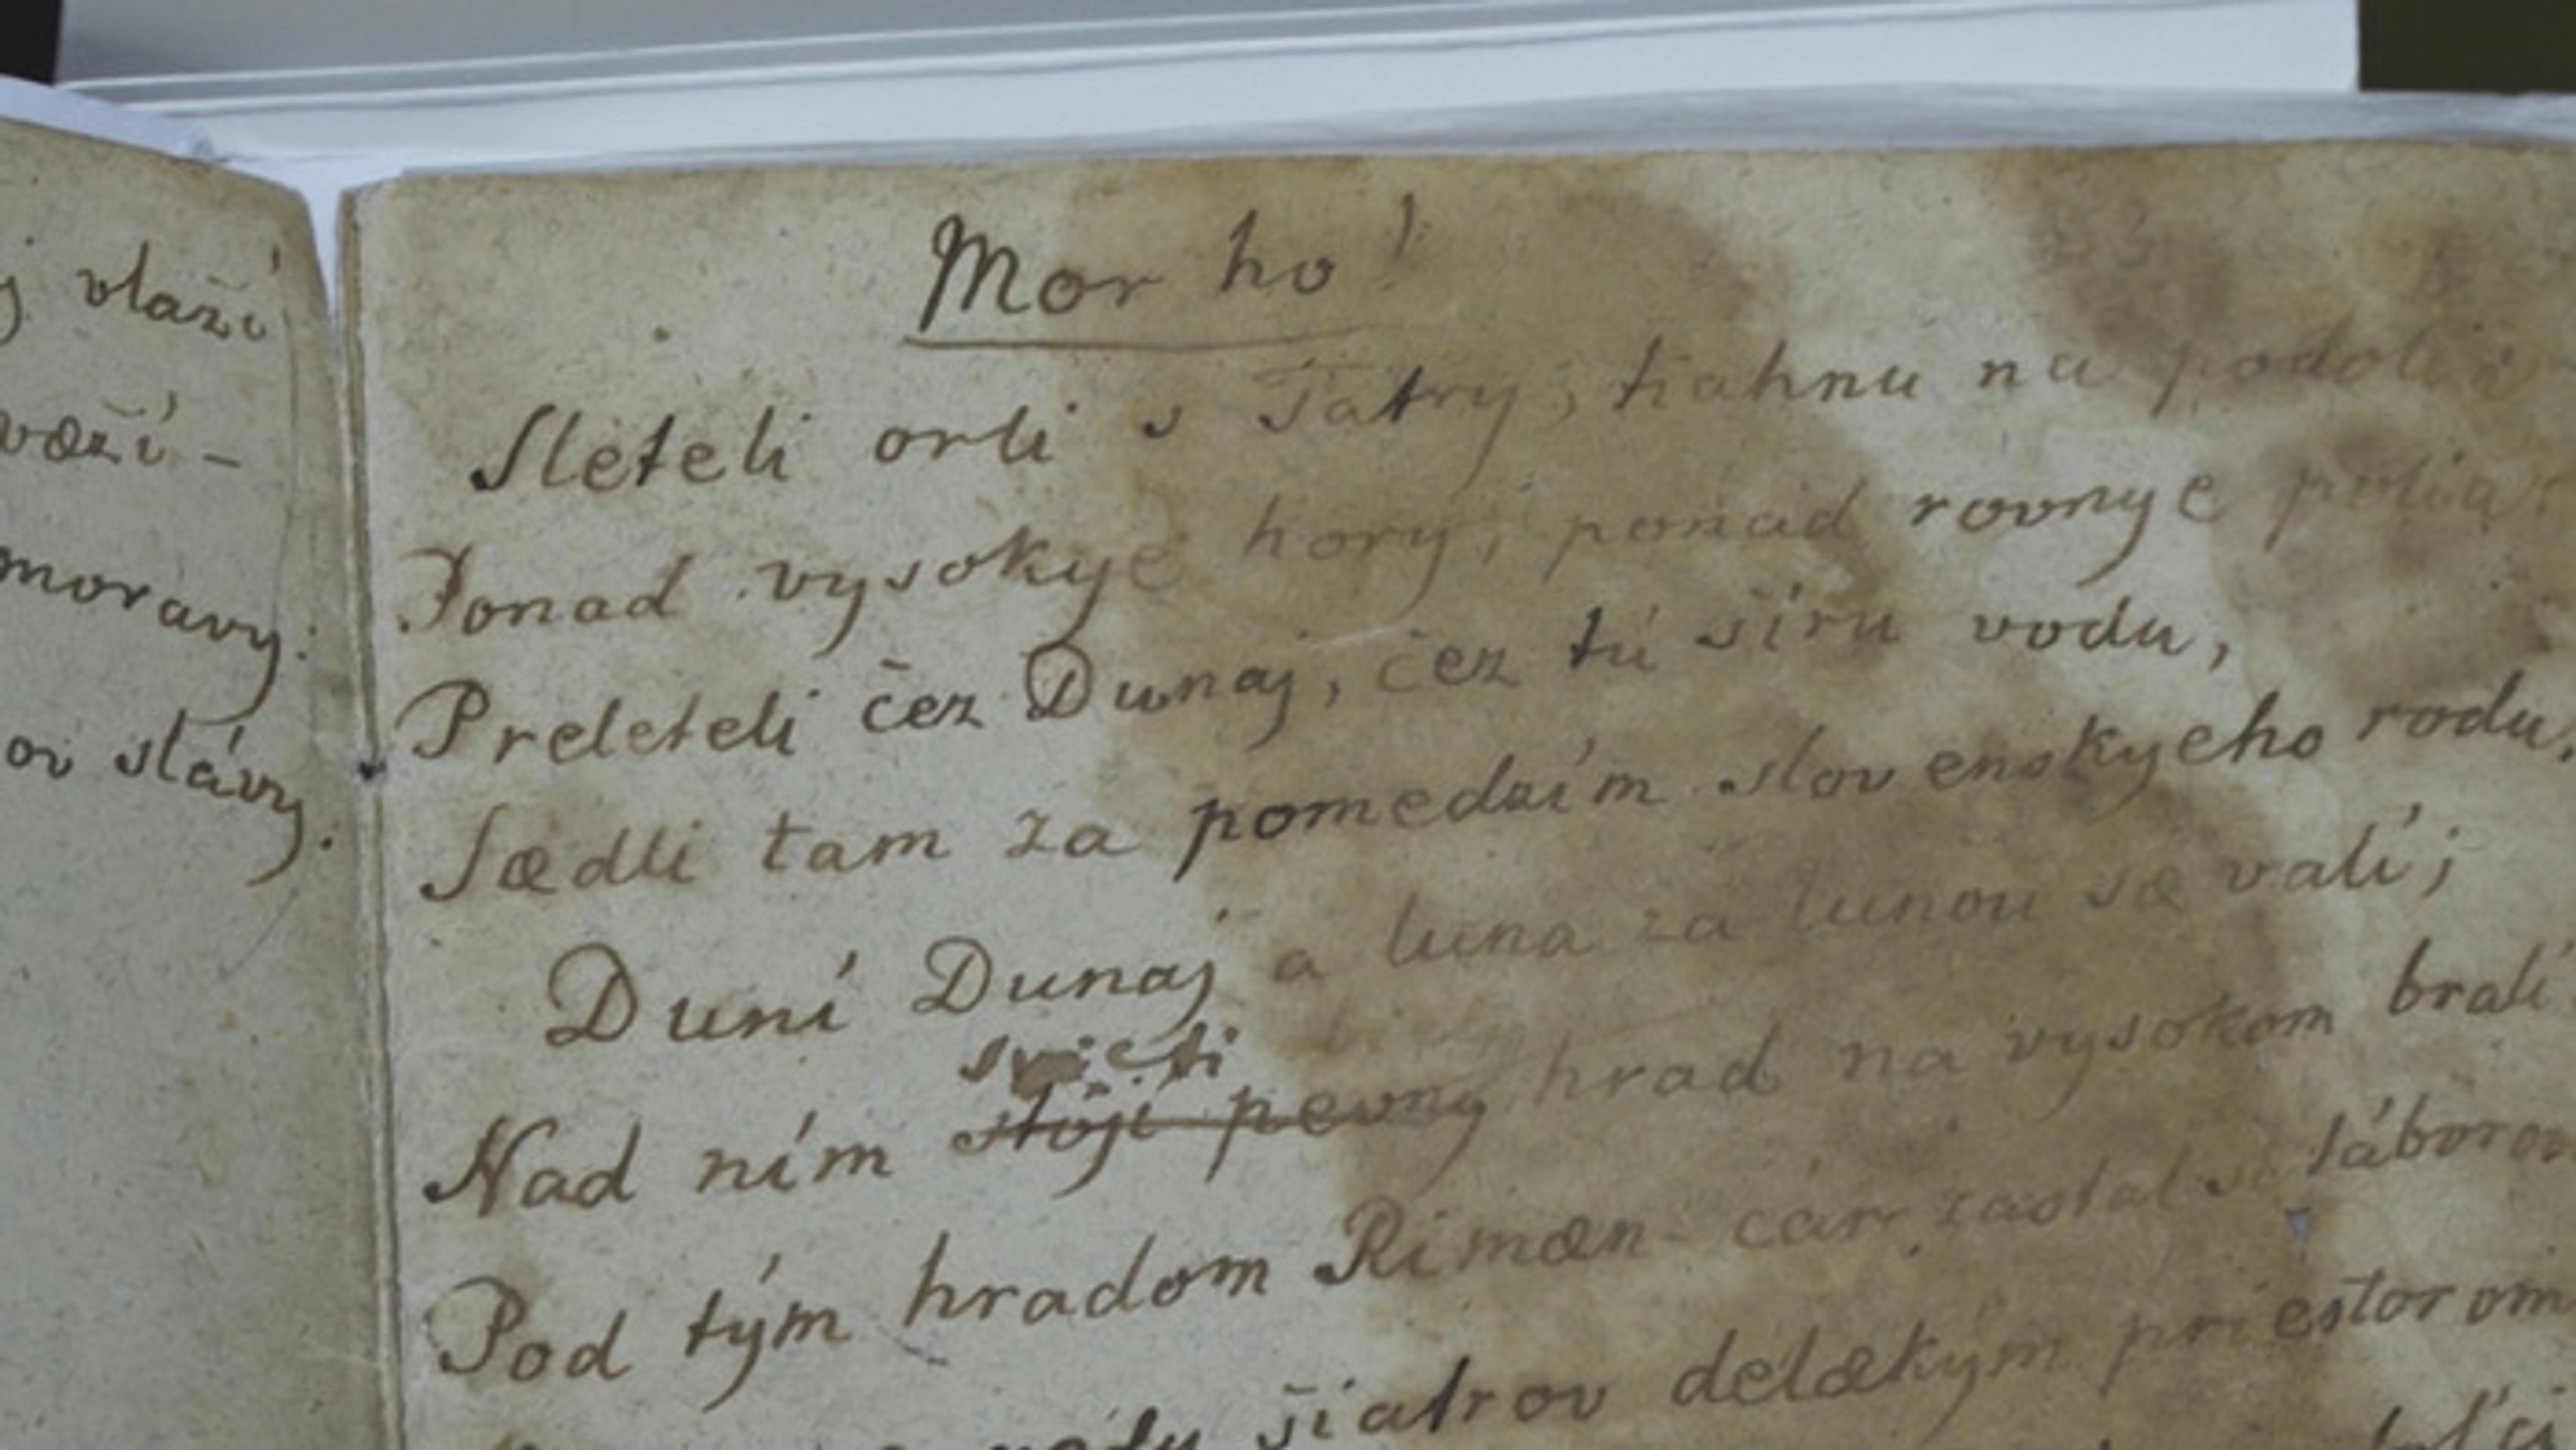 j vlaží
važí -
moravy:
ov slávy.
Mor ho!
Sleteli orli s Tatry, tiahnu na podolia
Ponad vysokye hory, ponad rovnye polia:
Preleteli čez Dunaj, čez tú šíru vodu,
Sædli tam za pomedzím slovenskyeho rodu.
Duní Dunaj a luna za lunou sæ valí;
svieti
Nad ním stojí pevný hrad na vysokom bralí
Pod tým hradom Rimæn- cár zastal táborom
rady šiatrov delækým priestorom